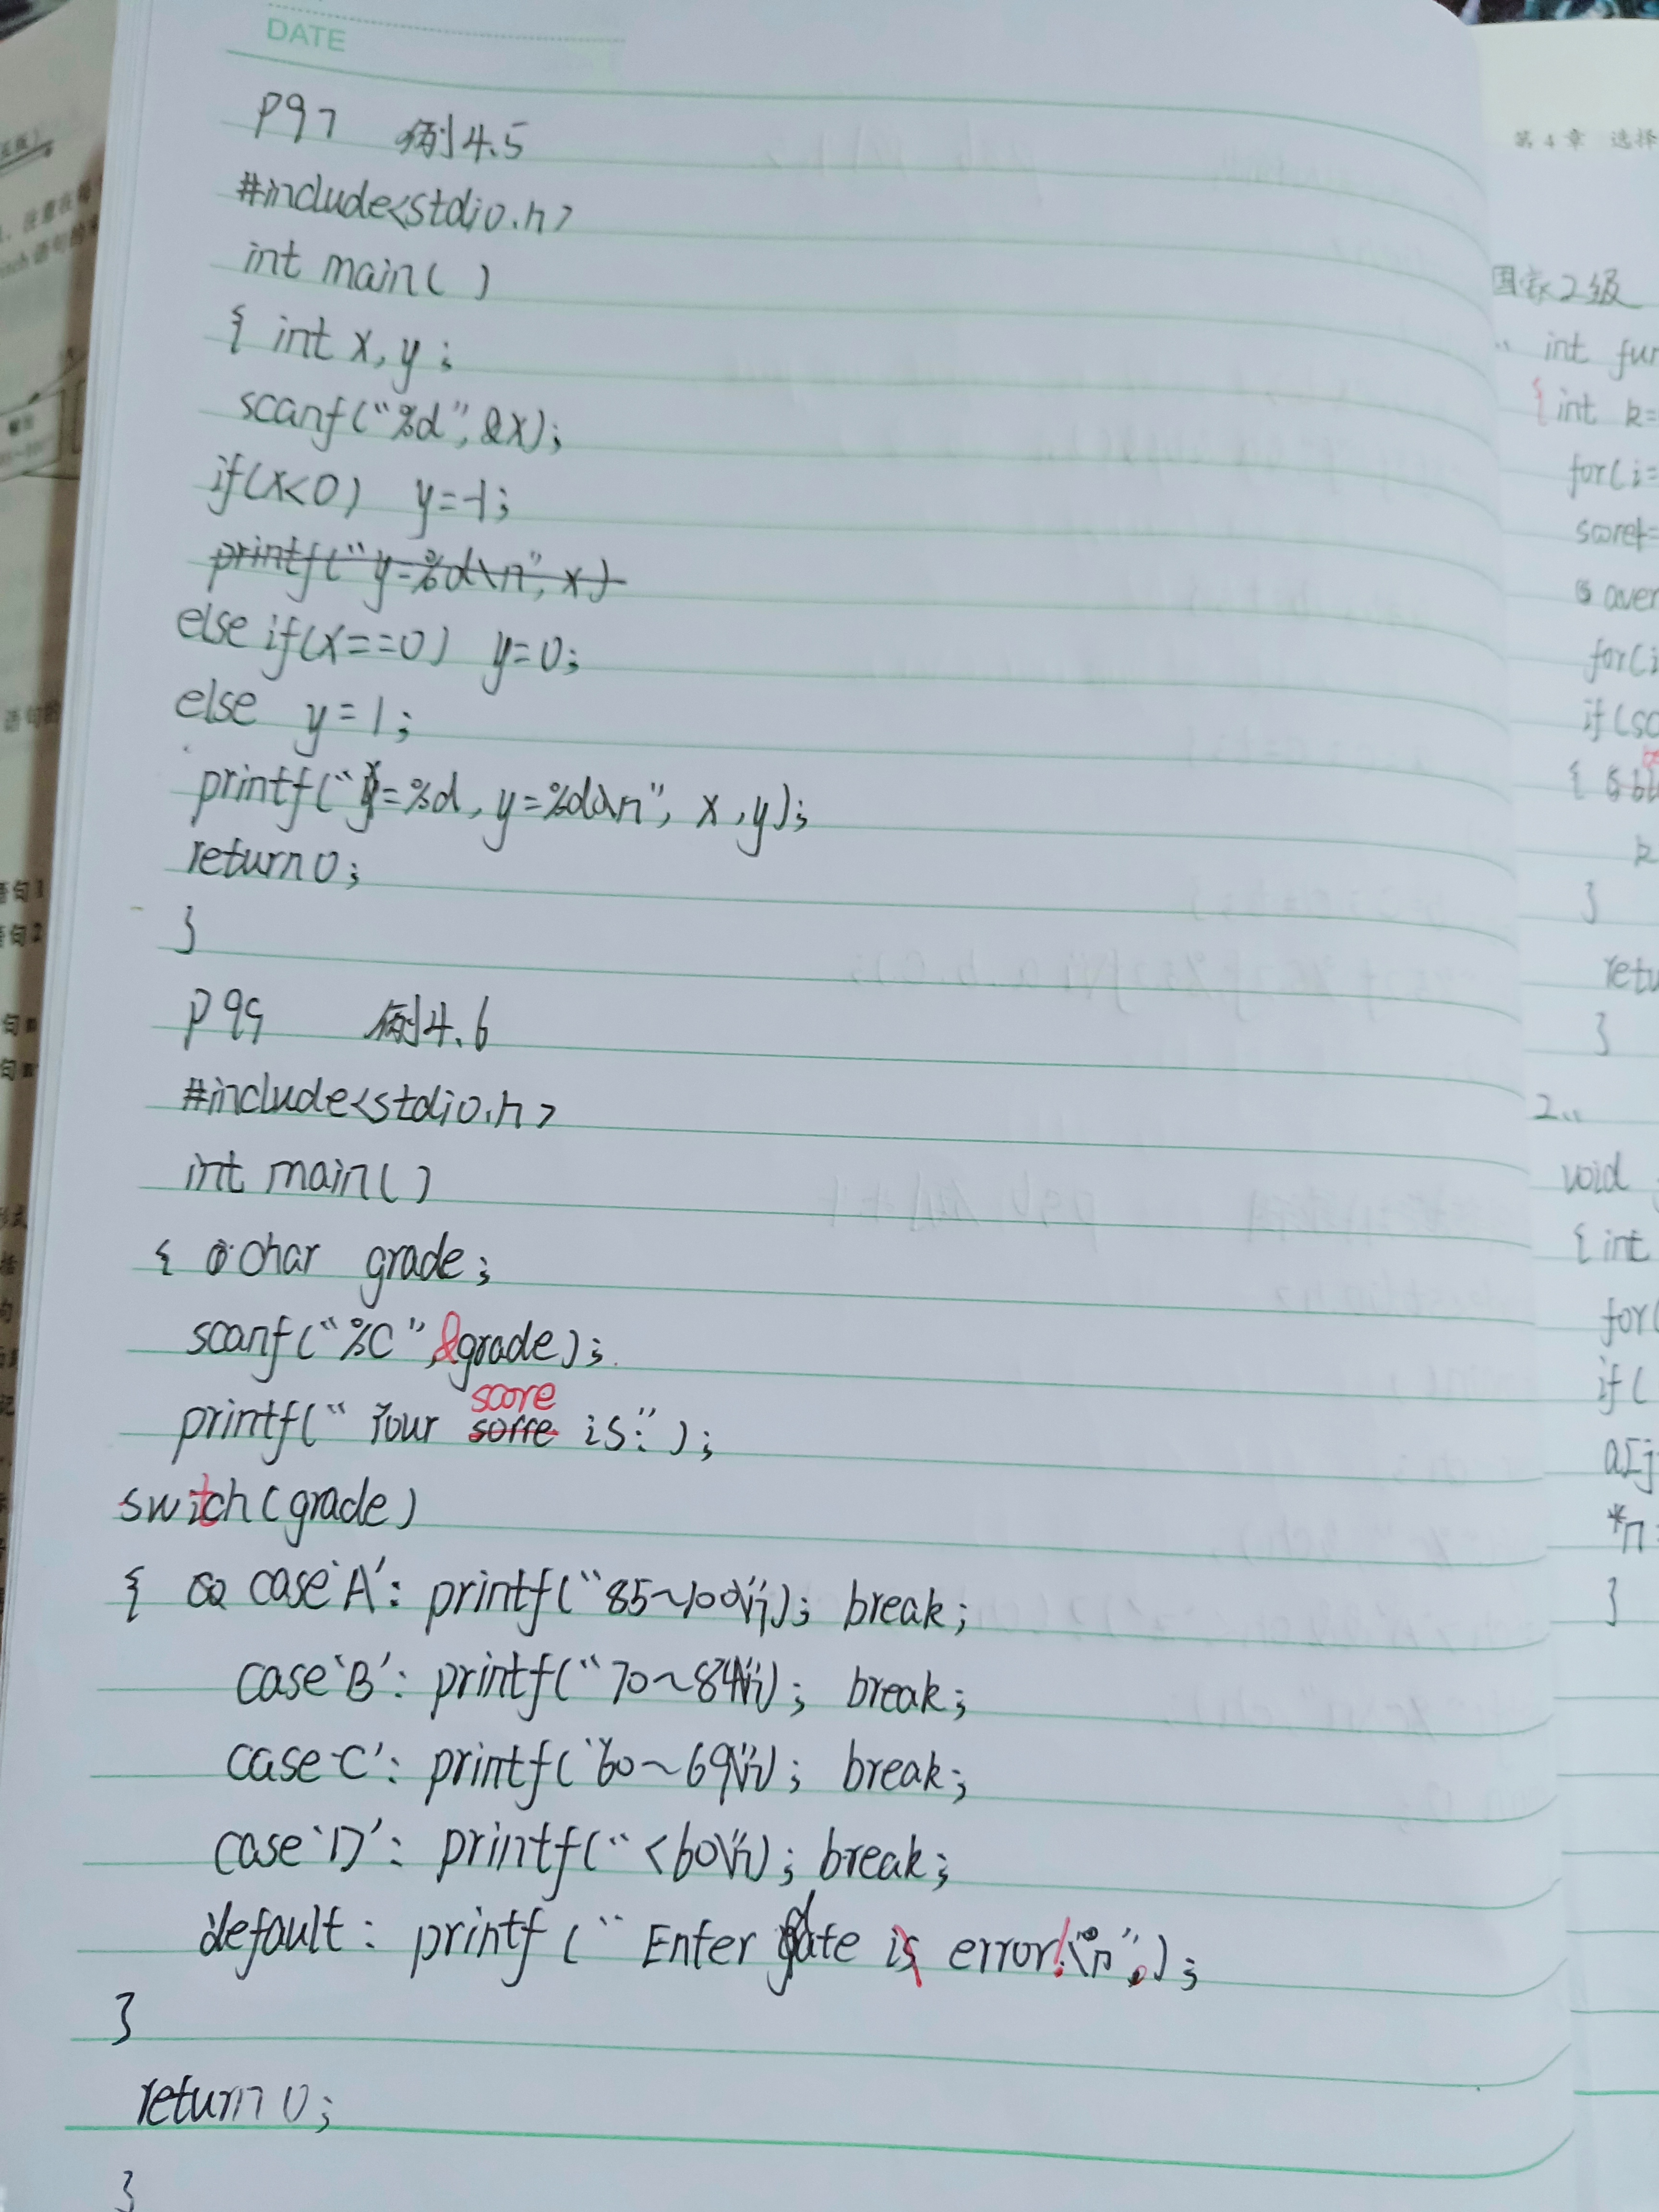 DATE
P97 例4.5
#include<stdio.h>
int main( )
{ int x, y;
scanf("%d", &x);
if(x<0) y=-1;
printf("y=%d\n", x)
else if(x==0) y=0;
else y=1;
printf("x=%d, y=%d\n", x, y);
return 0;
}
P99 例4.6
#include<stdio.h>
int main( )
{ char grade;
scanf("%c", &grade);
score
printf("Your is:");
switch(grade)
{ case 'A': printf("85~100\n"); break;
case 'B': printf("70~84\n"); break;
case 'C': printf("60~69\n"); break;
case 'D': printf("<60\n"); break;
default: printf("Enter date is error!\n");
}
return 0;
}
第 4 章 选择
国家2级
int fun
{int k=
for(i=
score+=
aver
for(i
if(sc
{
k
}
retu
}
2..
void
{int
for(
if(
a[j
*n=
}
语句的
语句1
语句2